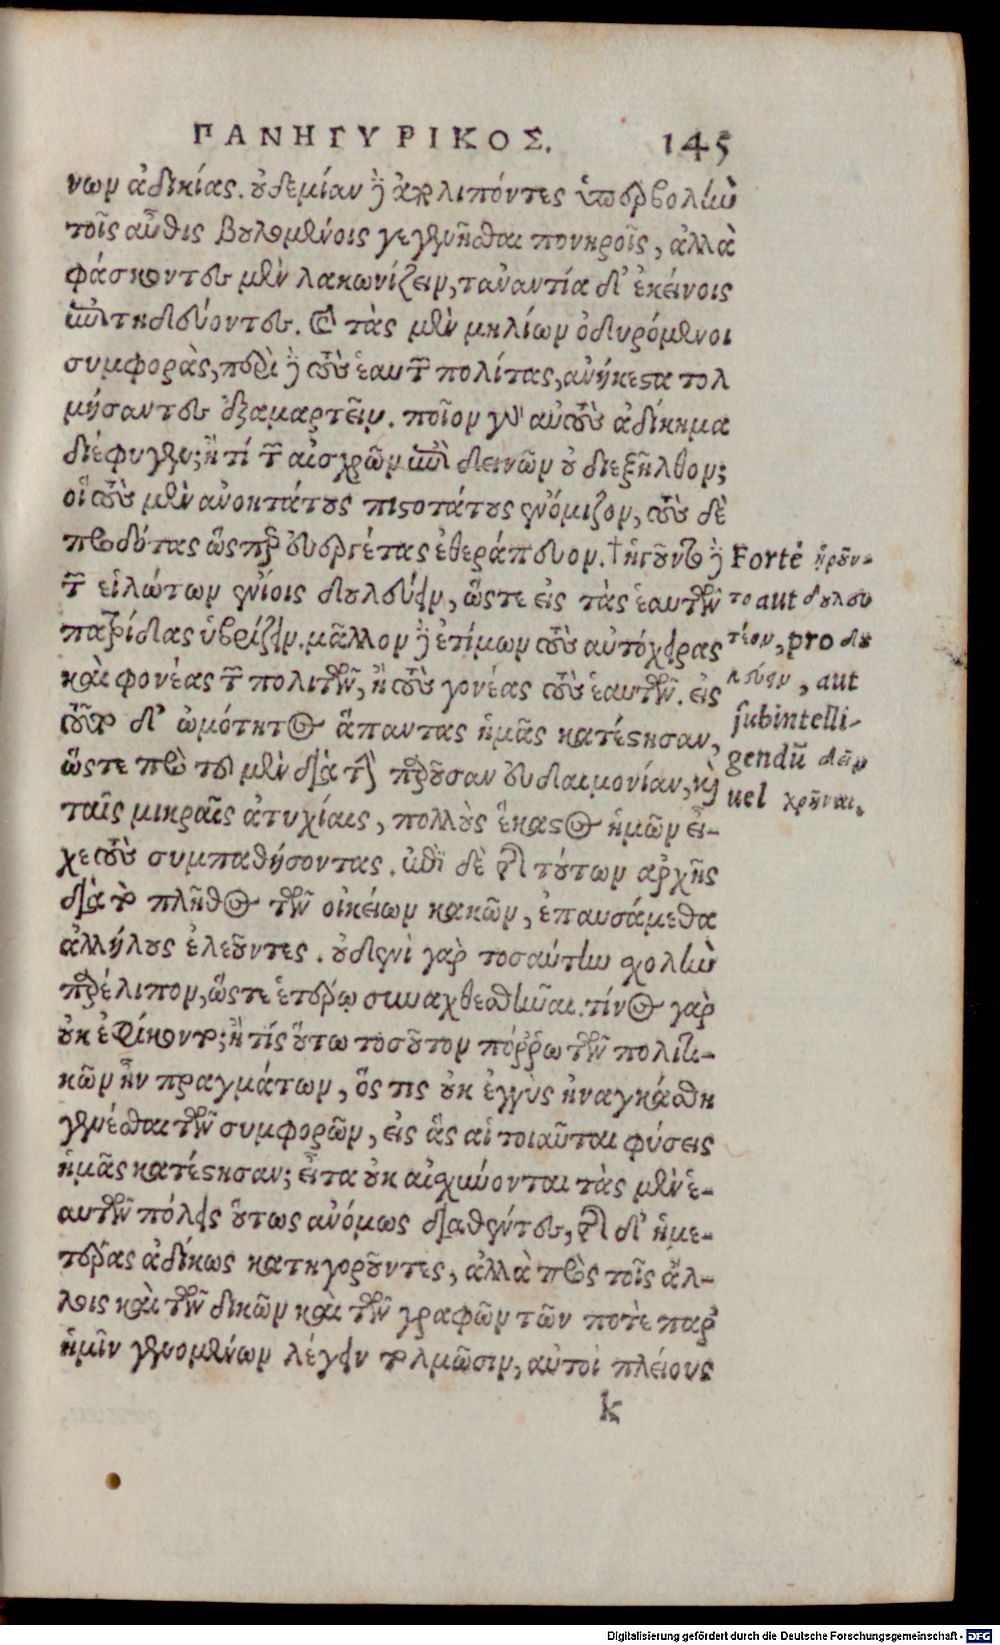 ΠΑΝΗΓΥΡΙΚΟΣ. 145
νων ἀδικίας. οὐδεμίαν δὲ καταλιπόντες ὑπερβολὴν
τοῖς αὖθις βουλομένοις γενέσθαι πονηροῖς, ἀλλὰ
φάσκοντες μὲν λακωνίζειν, τἀναντία δ' ἐκείνοις
ἐπιτηδεύοντες. καὶ τὰς μὲν μηλίων ὀδυρόμενοι
συμφορὰς, περὶ δὲ τοὺς ἑαυτῶν πολίτας, ἀνήκεστα τολ
μήσαντες ἐξαμαρτεῖν. ποῖον γὰρ αὐτοὺς ἀδίκημα
διέφυγεν; ἢ τί τῶν αἰσχρῶν ἢ δεινῶν οὐ διεξῆλθον;
οἳ τοὺς μὲν ἀνομωτάτους πιστοτάτους ἐνόμιζον, τοὺς δὲ
προδότας ὥσπερ εὐεργέτας ἐθεράπευον. †ἡγοῦντο δὲ
τῶν εἱλώτων ἐνίοις δουλεύειν, ὥστε εἰς τὰς ἑαυτῶν
πατρίδας ὑβρίζειν. μᾶλλον δὲ ἐτίμων τοὺς αὐτόχειρας
καὶ φονέας τῶν πολιτῶν, ἢ τοὺς γονέας τοὺς ἑαυτῶν. εἰς
τοῦτο δ' ὠμότητος ἅπαντας ἡμᾶς κατέστησαν,
ὥστε πρὸ τοῦ μὲν διὰ τὴν παροῦσαν εὐδαιμονίαν, καὶ
ταῖς μικραῖς ἀτυχίαις, πολλοὺς ἕκαστος ἡμῶν εἶ-
χε τοὺς συμπαθήσοντας. ἐπὶ δὲ τῆς τούτων ἀρχῆς
διὰ τὸ πλῆθος τῶν οἰκείων κακῶν, ἐπαυσάμεθα
ἀλλήλους ἐλεοῦντες. οὐδενὶ γὰρ τοσαύτην σχολὴν
παρέλιπον, ὥστε ἑτέρῳ συναχθεσθῆναι. τίνος γὰρ
οὐκ ἐφίκοντο; ἢ τίς οὕτω τοσοῦτον πόῤῥω τῶν πολιτι-
κῶν ἦν πραγμάτων, ὅς τις οὐκ ἐγγὺς ἠναγκάσθη
γενέσθαι τῶν συμφορῶν, εἰς ἃς αἱ τοιαῦται φύσεις
ἡμᾶς κατέστησαν; εἶτα οὐκ αἰσχύνονται τὰς μὲν ἑ-
αυτῶν πόλεις οὕτως ἀνόμως διαθέντες, τῆς δ' ἡμε-
τέρας ἀδίκως κατηγοροῦντες, ἀλλὰ πρὸς τοῖς ἄλ-
λοις καὶ τῶν δικῶν καὶ τῶν γραφῶν τῶν ποτὲ παρ'
ἡμῖν γενομένων λέγειν τολμῶσιν, αὐτοὶ πλείους
k
Forte ἡροῦν-
το aut δουλευ
τέον, pro δου
λεύειν, aut
subintelli-
gendũ δεῖν
uel χρῆναι.
Digitalisierung gefördert durch die Deutsche Forschungsgemeinschaft - DFG